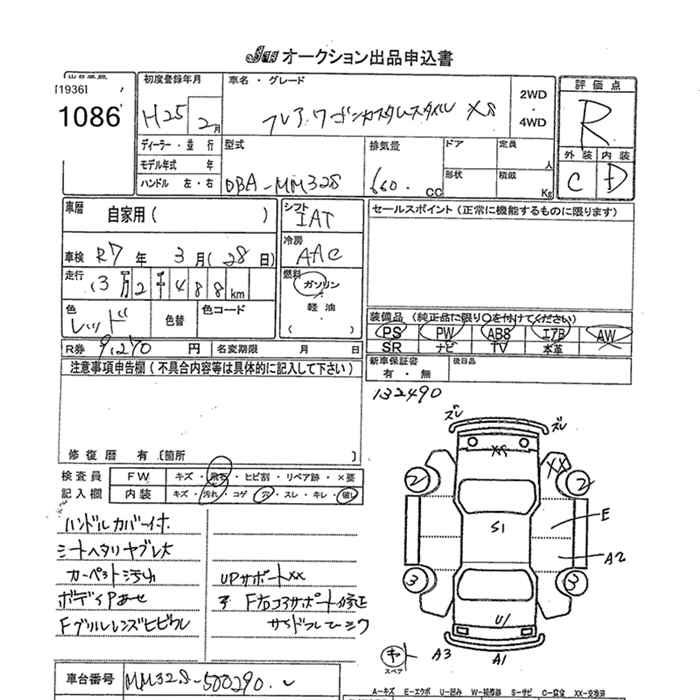 JU オークション出品申込書
出品番号
[1936]
1086
初度登録年月
H25 2月
車名・グレード
フレア.ワゴンカスタムスタイル XS
2WD
・
4WD
評価点
R
外装 内装
C D
ディーラー・並行
モデル年式 年
ハンドル 左・右
型式
DBA-MM32S
排気量
660. CC
ドア
定員
人
形状
積載
Kg
車歴 自家用( )
車検 R7年 3月(28日)
走行 13万2千488km
色 レッド
色替
色コード
シフト
IAT
冷房
AAC
燃料
ガソリン
軽油
( )
セールスポイント(正常に機能するものに限ります)
装備品(純正品に限り○を付けてください)
PS PW ABS エアB AW
SR ナビ TV 本革
R券 9,270円 名変期限 月 日
新車保証書
有・無
後日品
注意事項申告欄(不具合内容等は具体的に記入して下さい)
132490
修復歴 有 〔箇所 〕
検査員
記入欄
FW キズ・飛石・ヒビ割・リペア跡・×要
内装 キズ・汚れ・コゲ・穴・スレ・キレ・破レ
ハンドルカバー付
シートヘタリヤブレ大
カーペット汚れ
ボディPあせ
Fグリルレンズヒビワレ
UPサポートXX
F右コアサポート修正
サイドフレームシワ
ズレ ズレ
XX
XX
2 2
S1
E
A2
3 3
U1
キ
スペア
A3 A1
車台番号 MM32S-500290
A－キズ E－エクボ U－凹み W－補修跡 S－サビ C－腐食 XX－交換済